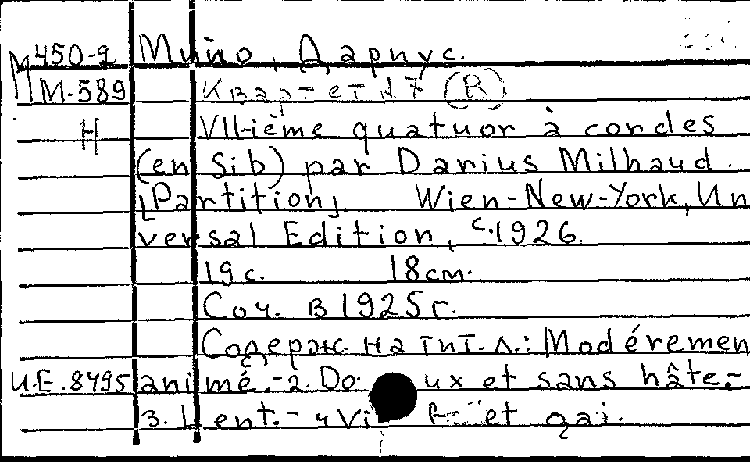 М450-2 Мийо, Дарпус.
М-589 Квартет №7 (R)
Н VII-ième quatuor à cordes
(en Sib) par Darius Milhaud.
[Partition] Wien-New-York, Un
versal Edition, c.1926.
19 с. 18 см.
Соч. в 1925 г.
Содерж. на тит. л.: Modéremen
U.E. 8495 animé.-2. Do ux et sans hâte.-
3. Lent.-4 Vi et gai.